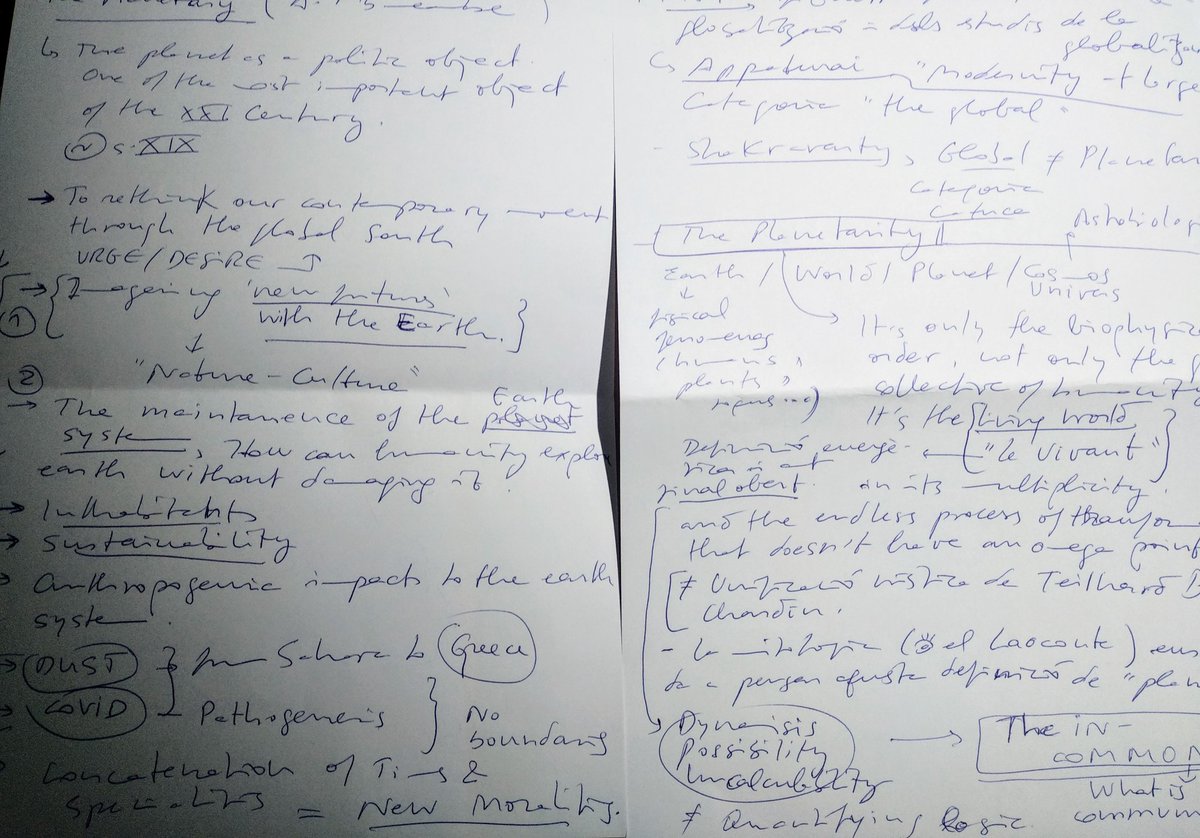 The Planetary (A.
↳ The planet as a politic object.
One of the most important object
of the XXI Century.
s. XIX
→ To rethink our contemporary moment
through the global South
URGE/DESIRE
① → { Imagening 'new futures'
with the Earth. }
↓
② "Nature-Culture"
→ The maintanence of the Earth
system, How can humanity explo
earth without damaging it?
→ Inhabitants
→ Sustainability
→ anthropogenic impacts to the earth
system.
→ DUST from Sahara to Greece
→ COVID – Pathogenesis } No
boundaries
Concatenation of Times &
Spatialities = New Moralities.
globalització = dels estudis de la
globalitza
↳ Appadurai "Modernity at large
Categoria "the global"
- Shakravarty, Global ≠ Planetar
Categoria
Astrobiolog
The Planetarity
Earth / World / Planet / Cosmos
Univers
↓
físical
fenomens
humans,
plants,
It's only the biophysica
order, not only the
collective of humanity
It's the [living world
"le vivant"]
Definició emergè-
final obert.
in its multiplicity.
and the endless process of transfor
that doesn't have an omega point
[≠ Unificació mística de Teilhard D
Chardin.
- la mitologia (el Laocoonte) ens
da a pensar aquesta definició de "plan
Dynamisis
Possibility
Uncalculability
→ The IN-
COMMON
What is
commun
≠ Quantifying logic.